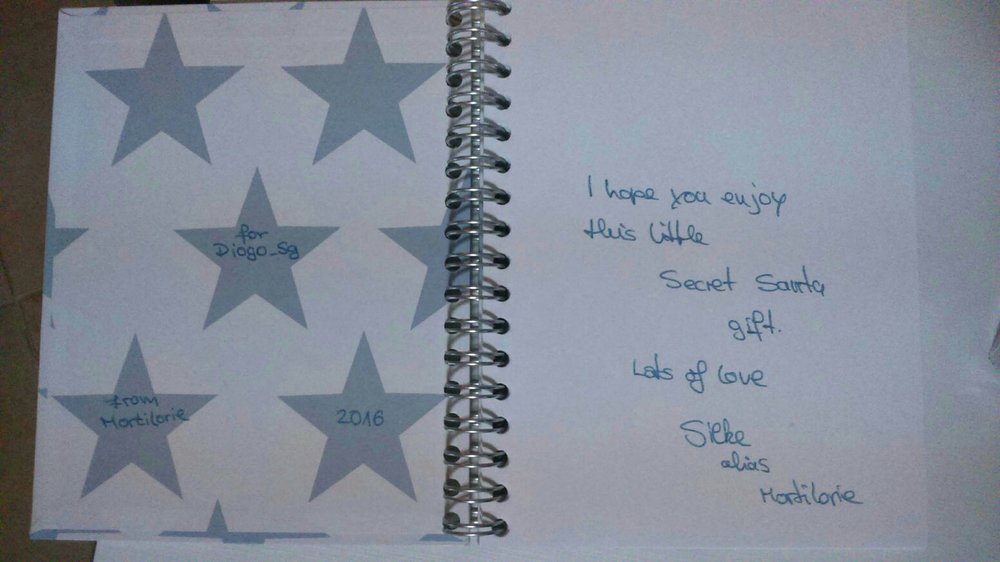 for
Diogo_Sg
from
Mortilorie
2016
I hope you enjoy
this little
Secret Santa
gift.
Lots of love
Silke
alias
Mortilorie